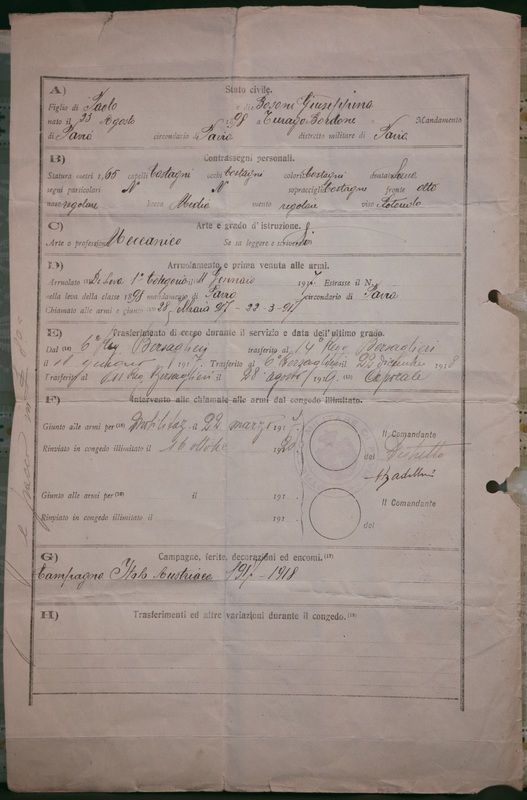 A) Stato civile.
Figlio di Paolo e di Bosoni Giuseppina
nato il 23 Agosto 1898 a Torago Bordone Mandamento
di Pavia circondario di Pavia distretto militare di Pavia
B) Contrassegni personali.
Statura metri 1,65 capelli castagni occhi castagni colorito dentatura sana
segni particolari N N sopracciglia castagne fronte alta
naso regolare bocca Media mento regolare viso Rotondo
C) Arte e grado d'istruzione.
Arte o professione Meccanico Se sa leggere e scrivere Si
D) Arruolamento e prima venuta alle armi.
Arruolato Di Leva 1ª Categoria il 11 Gennaio 1917 Estrasse il N.
nella leva della classe 1898 mandamento di Pavia circondario di Pavia
Chiamato alle armi e giunto 22-3-917
E) Trasferimento di corpo durante il servizio e data dell'ultimo grado.
Dal 6º Reg Bersaglieri trasferito al 14º Regg Bersaglieri
il 11 1917. Trasferito al 6 Bersaglieri il 22 dicembre 1918
Trasferito al Bersaglieri il 28 agosto 1919 Caporale
F) Intervento alle chiamate alle armi dal congedo illimitato.
Giunto alle armi per (16) il 22 marzo 191
Il Comandante
Rinviato in congedo illimitato il 16 ottobre 1920
del Distretto
Giunto alle armi per (16) il 191
Il Comandante
Rinviato in congedo illimitato il 191
del
G) Campagne, ferite, decorazioni ed encomi. (17)
Campagna Italo Austriaca 1917-1918
H) Trasferimenti ed altre variazioni durante il congedo. (18)